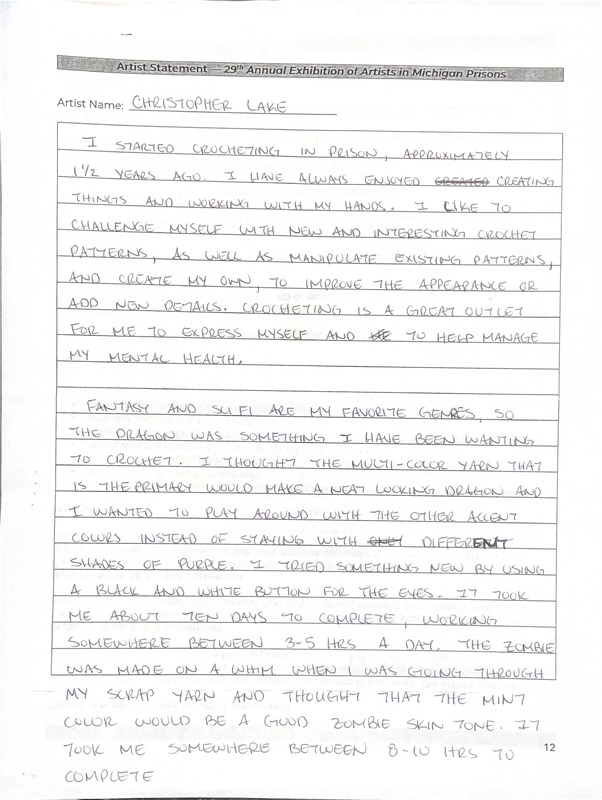 Artist Statement — 29th Annual Exhibition of Artists in Michigan Prisons
Artist Name: CHRISTOPHER LAKE
I STARTED CROCHETING IN PRISON, APPROXIMATELY
1 1/2 YEARS AGO. I HAVE ALWAYS ENJOYED CREATED CREATING
THINGS AND WORKING WITH MY HANDS. I LIKE TO
CHALLENGE MYSELF WITH NEW AND INTERESTING CROCHET
PATTERNS, AS WELL AS MANIPULATE EXISTING PATTERNS,
AND CREATE MY OWN, TO IMPROVE THE APPEARANCE OR
ADD NEW DETAILS. CROCHETING IS A GREAT OUTLET
FOR ME TO EXPRESS MYSELF AND TO HELP MANAGE
MY MENTAL HEALTH.
FANTASY AND SCI FI ARE MY FAVORITE GENRES, SO
THE DRAGON WAS SOMETHING I HAVE BEEN WANTING
TO CROCHET. I THOUGHT THE MULTI-COLOR YARN THAT
IS THE PRIMARY WOULD MAKE A NEAT LOOKING DRAGON AND
I WANTED TO PLAY AROUND WITH THE OTHER ACCENT
COLORS INSTEAD OF STAYING WITH ONLY DIFFERENT
SHADES OF PURPLE. I TRIED SOMETHING NEW BY USING
A BLACK AND WHITE BUTTON FOR THE EYES. IT TOOK
ME ABOUT TEN DAYS TO COMPLETE, WORKING
SOMEWHERE BETWEEN 3-5 HRS A DAY. THE ZOMBIE
WAS MADE ON A WHIM WHEN I WAS GOING THROUGH
MY SCRAP YARN AND THOUGHT THAT THE MINT
COLOR WOULD BE A GOOD ZOMBIE SKIN TONE. IT
TOOK ME SOMEWHERE BETWEEN 8-10 HRS TO
COMPLETE
12